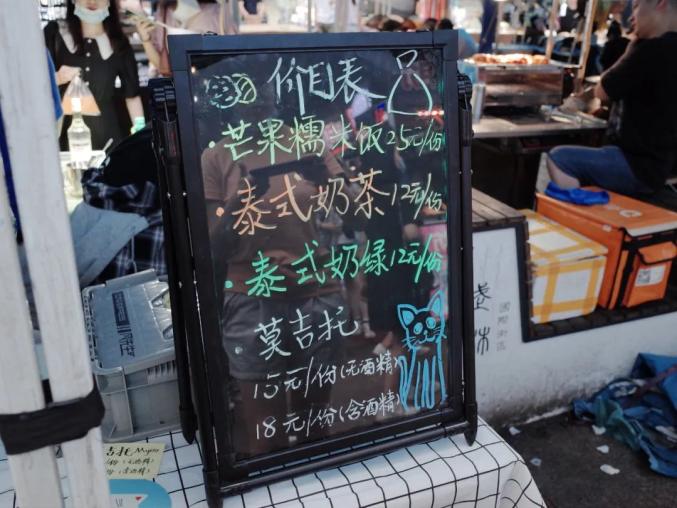 价目表
· 芒果糯米饭25元/份
· 泰式奶茶12元/份
· 泰式奶绿12元/份
· 莫吉托
15元/份(无酒精)
18元/份(含酒精)
國際街區
吉托 Mojito
/份(无酒精)